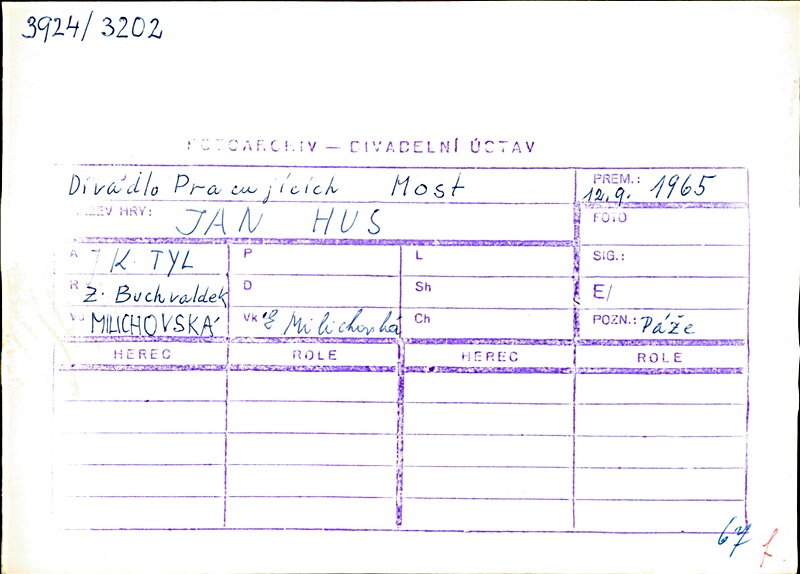 3924/3202
FOTOARCHIV — DIVADELNÍ ÚSTAV
Divadlo Pracujících Most
PREM.: 12.9. 1965
NÁZEV HRY: JAN HUS
FOTO
A J K. TYL P L SIG.:
R Z. Buchvaldek D Sh E/
MILICHOVSKÁ Vk E Milichovská Ch POZN.: Páže
HEREC ROLE HEREC ROLE
67